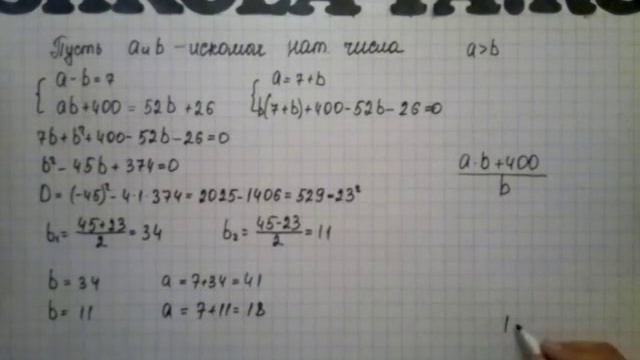 SHKOLA YA.RU
Пусть a и b – искомые нат. числа a>b
a-b=7 a=7+b
ab+400=52b+26 b(7+b)+400-52b-26=0
7b+b²+400-52b-26=0
b²-45b+374=0
a·b+400
b
D=(-45)²-4·1·374=2025-1406=529=23²
b₁=45+23/2=34 b₂=45-23/2=11
b=34 a=7+34=41
b=11 a=7+11=18
1